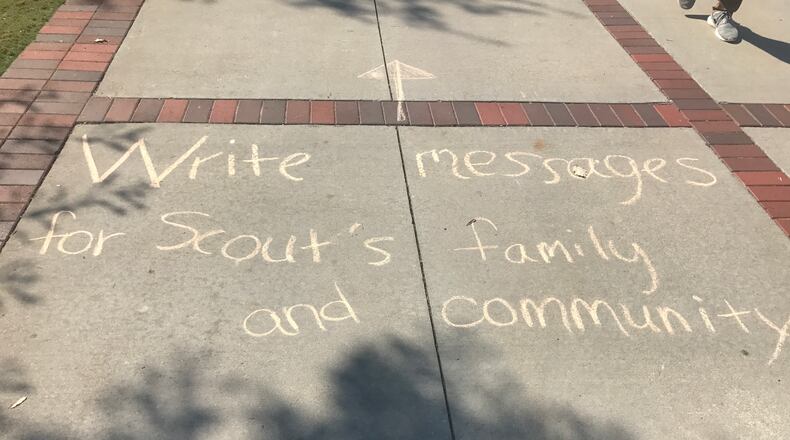 Write messages
for Scout's family
and community